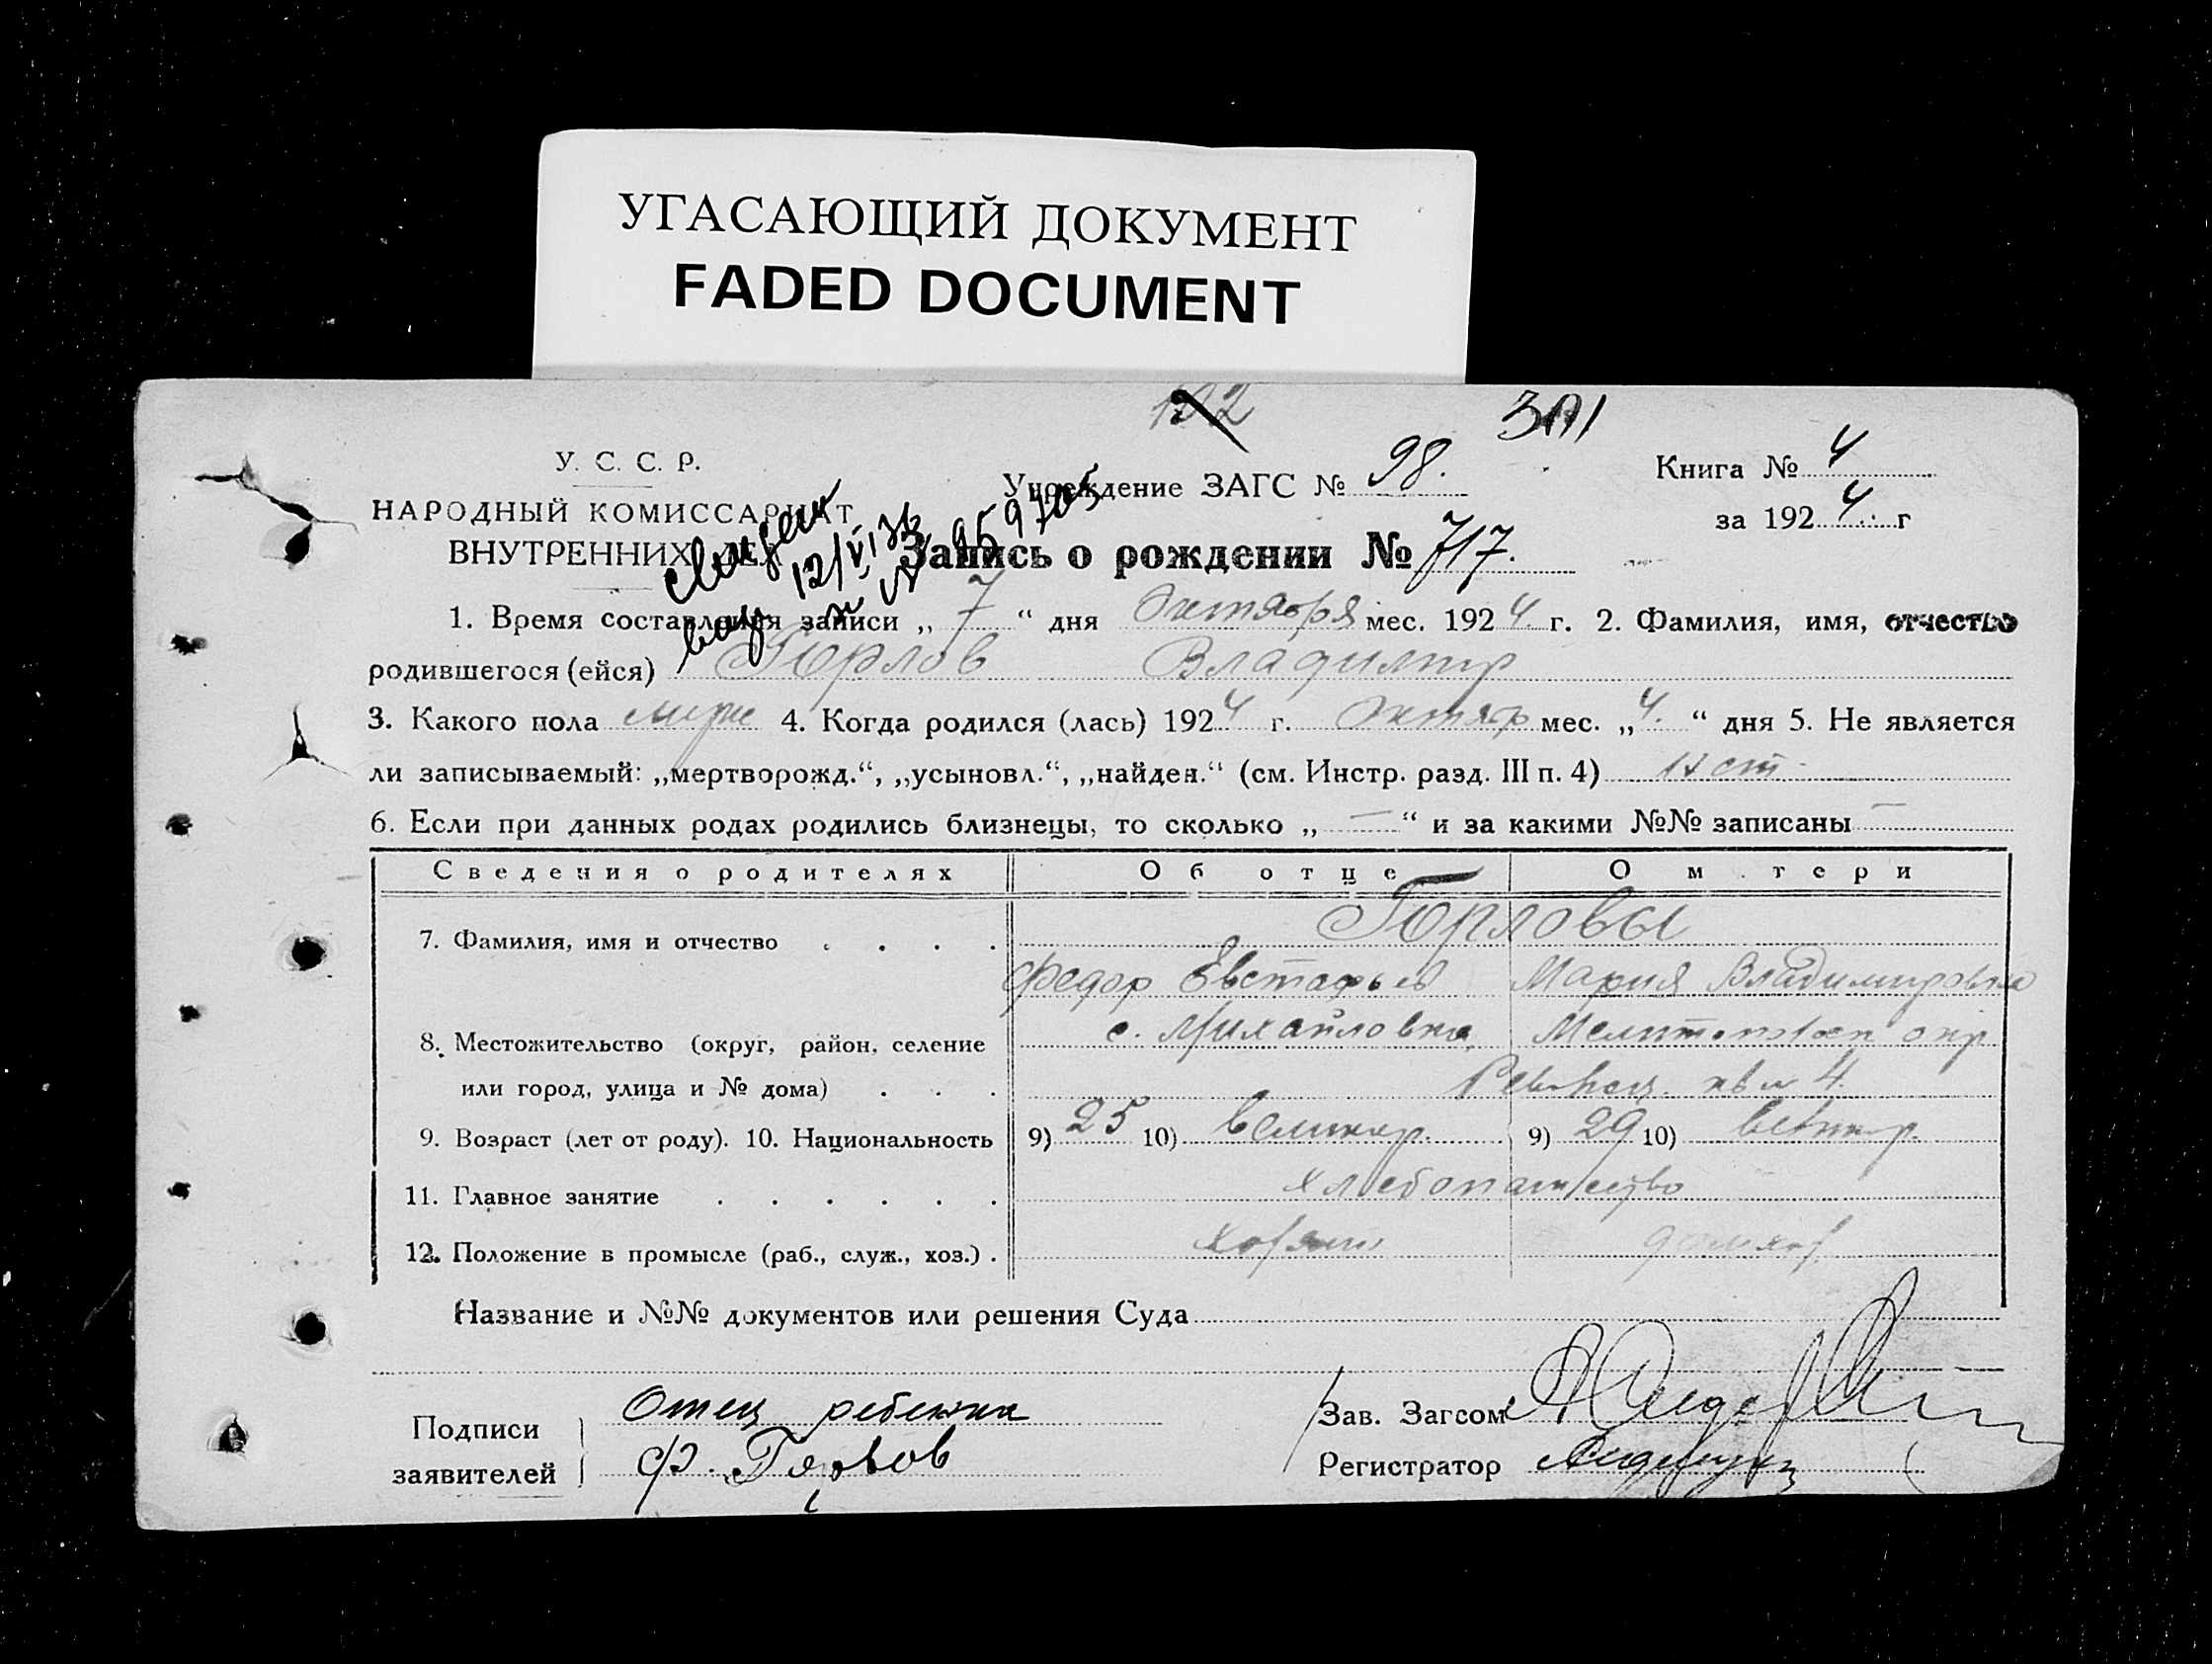 УГАСАЮЩИЙ ДОКУМЕНТ
FADED DOCUMENT
У. С. С. Р.
НАРОДНЫЙ КОМИССАРИАТ
ВНУТРЕННИХ ДЕЛ
Учреждение ЗАГС № 98.
Книга № 4
за 1924 г
12/VI 36
Запись о рождении № 717.
1. Время составления записи „ 7 “ дня Октября мес. 1924. г. 2. Фамилия, имя, отчество
родившегося (ейся) Горлов Владимир
3. Какого пола муж 4. Когда родился (лась) 1924 г. Октяб мес. „ 4. “ дня 5. Не является
ли записываемый: „мертворожд.“, „усыновл.“, „найден.“ (см. Инстр. разд. III п. 4) Нет
6. Если при данных родах родились близнецы, то сколько „ — “ и за какими №№ записаны —
Сведения о родителях Об отце О м тери
Горловы
7. Фамилия, имя и отчество . . . .
Федор Евстафьев Мария Владимировна
8. Местожительство (округ, район, селение с. Михайловка, Мелитопольск окр
или город, улица и № дома) . . .
4.
9. Возраст (лет от роду). 10. Национальность 9) 25 10) великор. 9) 29 10) великор.
11. Главное занятие . . . . . . хлебопашество
12. Положение в промысле (раб., служ., хоз.) . хозяин домхоз.
Название и №№ документов или решения Суда
Подписи заявителей
Отец ребенка
Ф. Горлов
Зав. Загсом
Регистратор